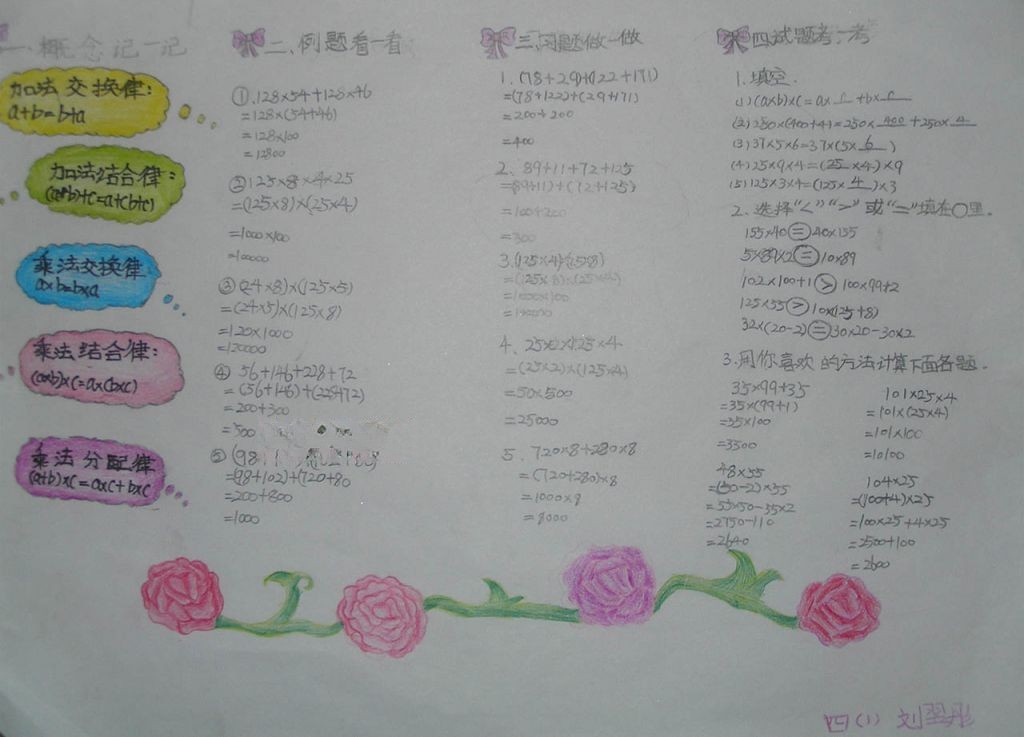 一、概念记一记
加法交换律:
a+b=b+a
加法结合律:
(a+b)+c=a+(b+c)
乘法交换律
a×b=b×a
乘法结合律:
(a×b)×c=a×(b×c)
乘法分配律
(a+b)×c=a×c+b×c
二、例题看一看
①.128×54+128×46
=128×(54+46)
=128×100
=12800
②125×8×4×25
=(125×8)×(25×4)
=1000×100
=100000
③(24×8)×(125×5)
=(24×5)×(125×8)
=120×1000
=120000
④ 56+146+228+72
=(56+146)+(228+72)
=200+300
=500
⑤(98+
=(98+102)+(720+80
=200+800
=1000
三、习题做一做
1.(78+29)+(122+171)
=(78+122)+(29+171)
=200+200
=400
2、89+11+72+125
=(89+11)+(72+125)
=100+200
=300
3.(125×4)×(25×8)
=(125×8)×(25×4)
=1000×100
=100000
4、25×2×125×4
=(25×2)×(125×4)
=50×500
=25000
5、720×8+280×8
=(720+280)×8
=1000×8
=8000
四试题考一考
1.填空.
(1)(a×b)×c=a×c+b×c
(2)250×(400+4)=250×400+250×4
(3)37×5×6=37×(5×6)
(4)25×9×4=(25×4)×9
(5)125×3×4=(125×4)×3
2、选择“<”“>”或“=”填在○里。
155×40=40×155
5×89×2=10×89
102×100+1>100×99+2
125×55>10×(125+8)
32×(20-2)=30×20-30×2
3.用你喜欢的方法计算下面各题.
35×99+35
=35×(99+1)
=35×100
=3500
101×25×4
=101×(25×4)
=101×100
=10100
48×55
=(50-2)×55
=55×50-55×2
=2750-110
=2640
104×25
=(100+4)×25
=100×25+4×25
=2500+100
=2600
四(1) 刘翌彤